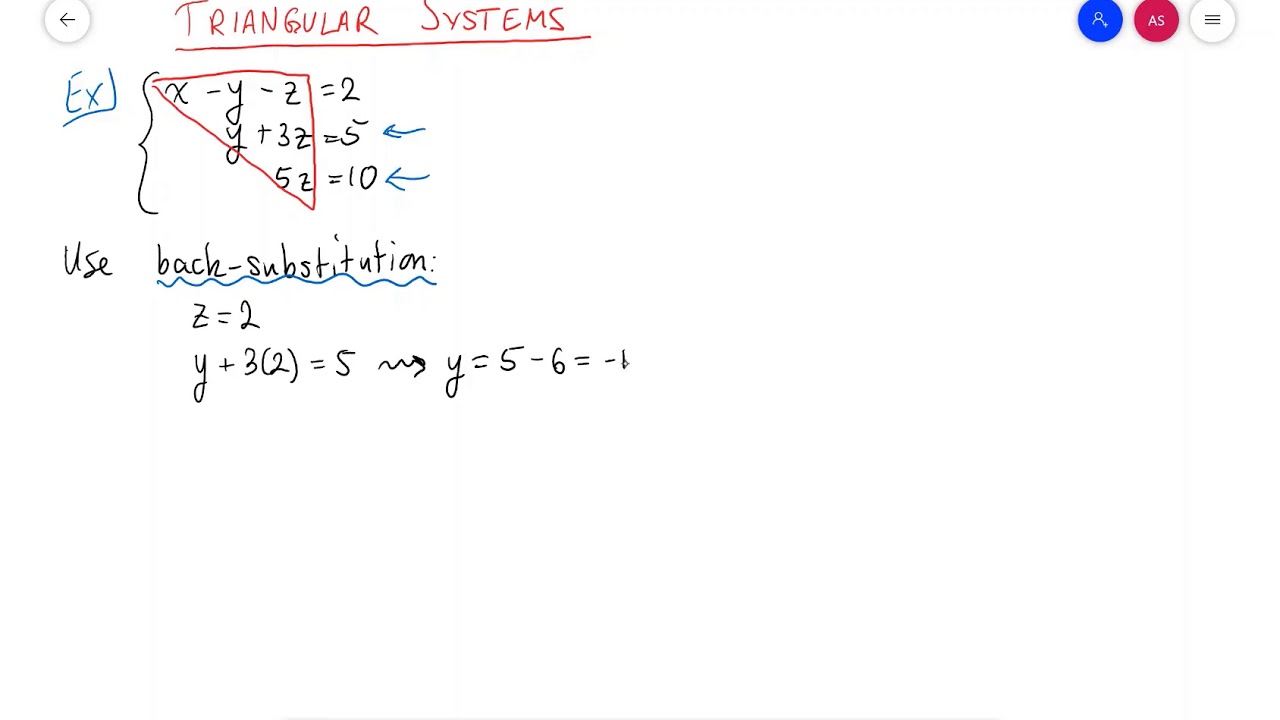 TRIANGULAR SYSTEMS
AS
Ex) x - y - z = 2
y + 3z = 5 ←
5z = 10 ←
Use back-substitution:
z = 2
y + 3(2) = 5 ⇝ y = 5 - 6 = -1